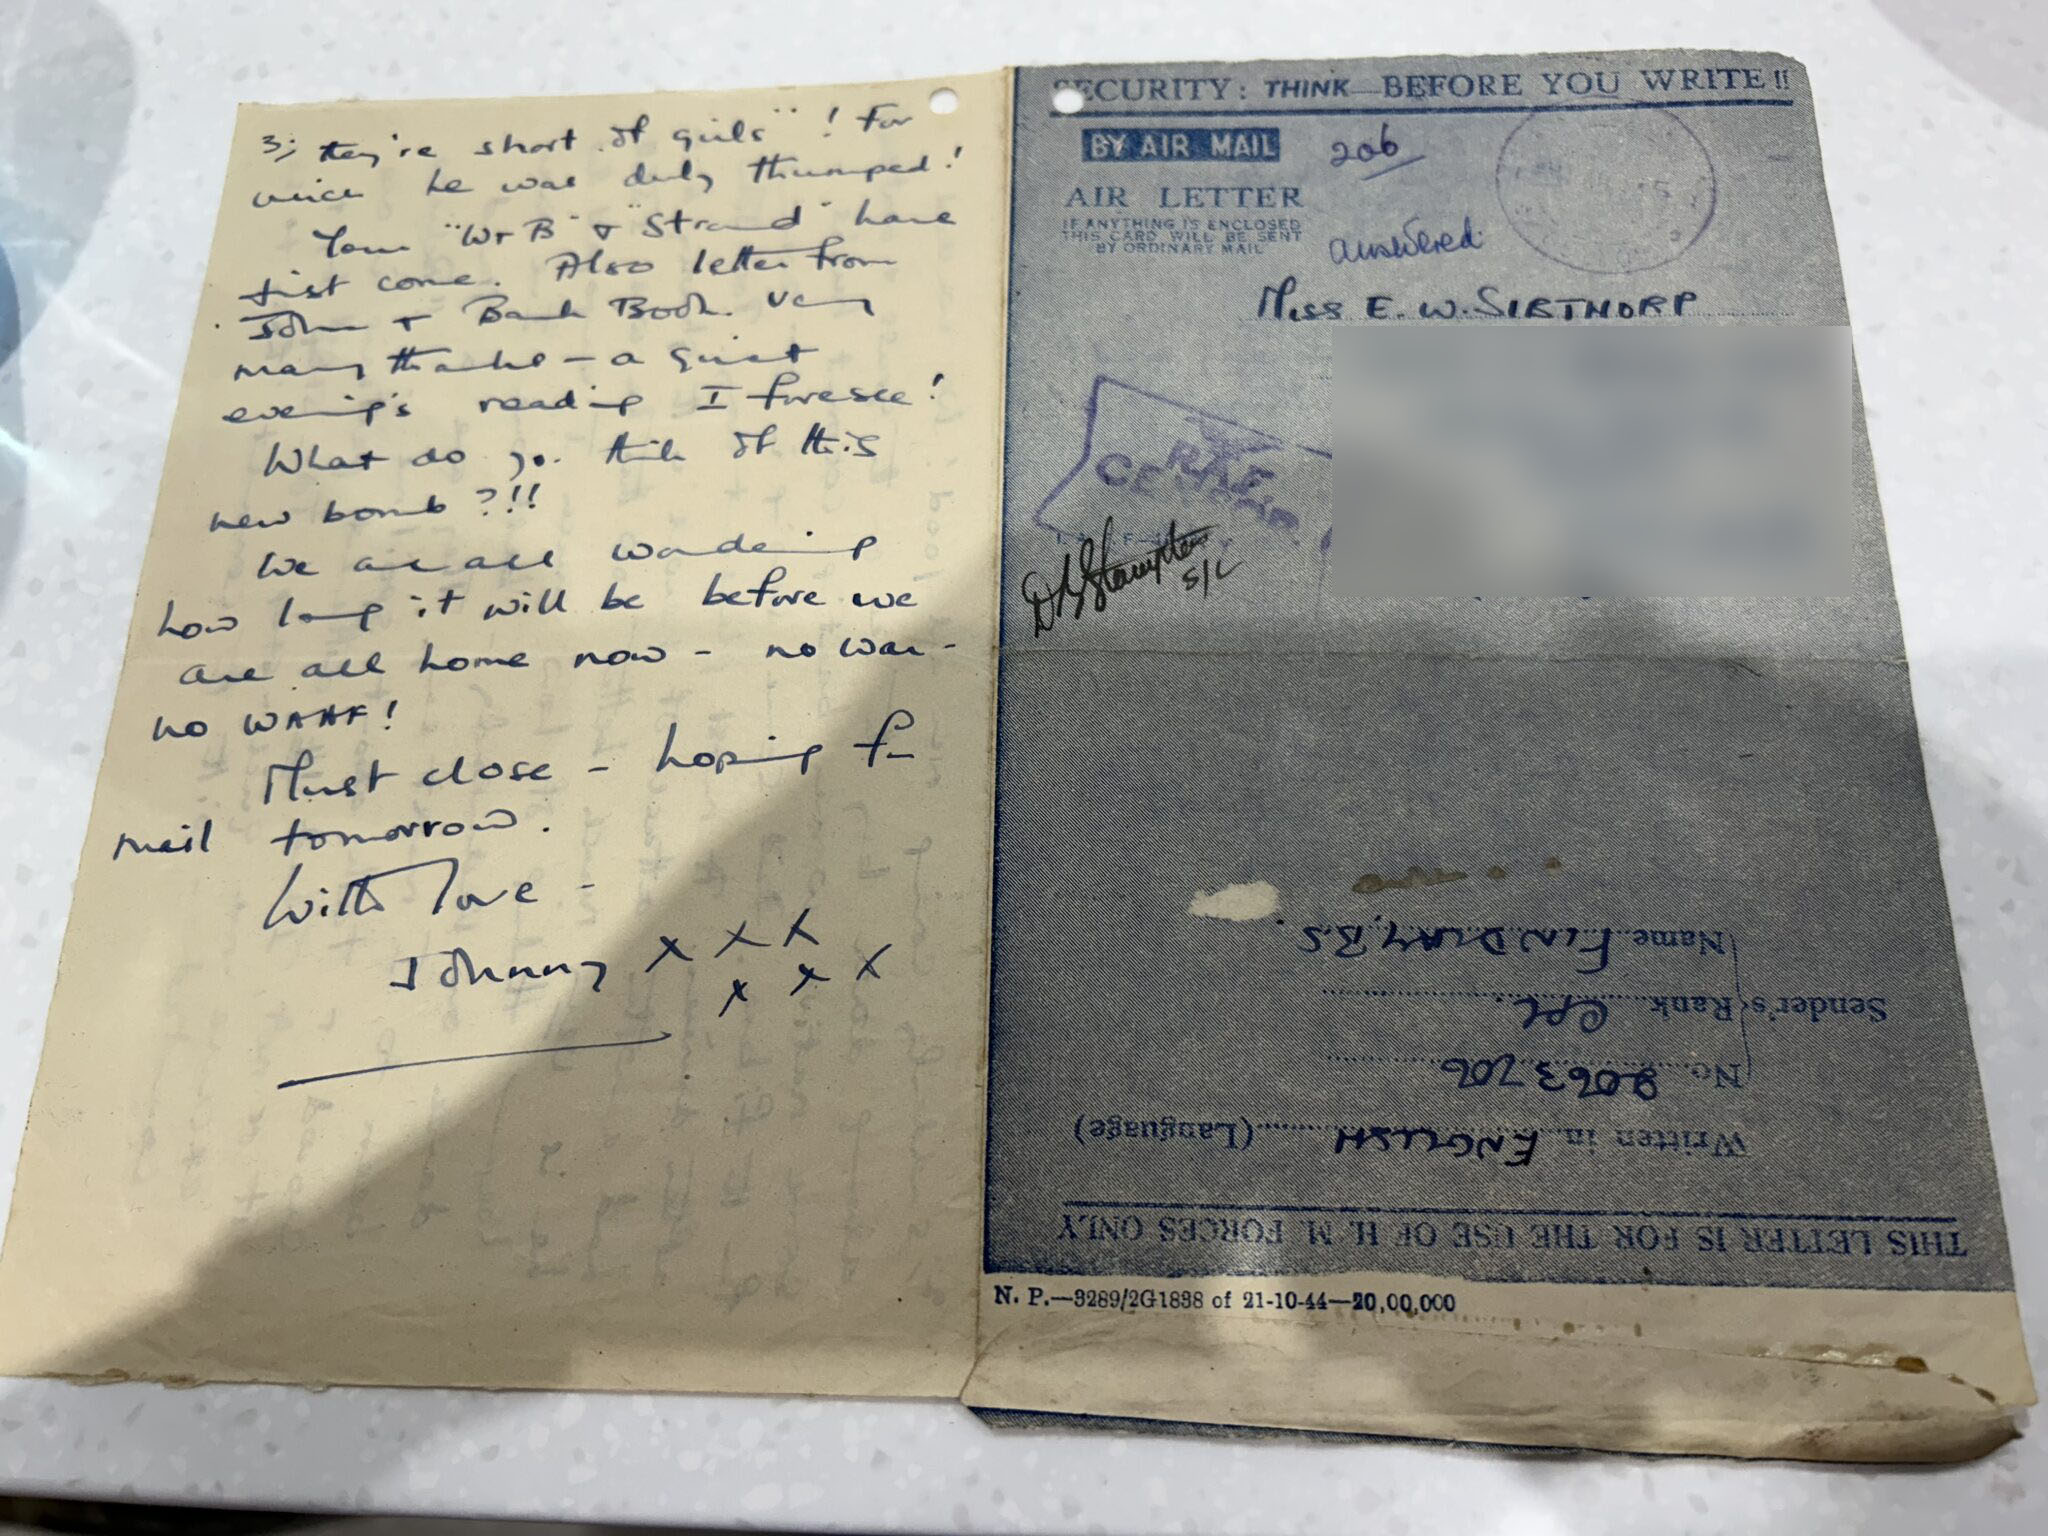 3; they're short of girls" ! For
which he was duly thumped!
Your "W+B" + "Strand" have
just come. Also letter from
John + Bank Book. Very
many thanks - a quiet
evening's reading I foresee!
What do you think of this
new bomb ?!!!
We are all wondering
how long it will be before we
are all home now - no war -
no WAAF!
Must close - hoping for
mail tomorrow.
With love -
Johnny x x x
x x x
SECURITY: THINK BEFORE YOU WRITE !!
BY AIR MAIL
206
AIR LETTER
IF ANYTHING IS ENCLOSED
THIS CARD WILL BE SENT
BY ORDINARY MAIL
answered.
MISS E. W. SIBTHORP
RAF
CENSOR
S/L
Name FINDLAY, B.S.
Sender's Rank CPL
No. 2063706
Written in ENGLISH (Language)
THIS LETTER IS FOR THE USE OF H. M. FORCES ONLY
N. P.—3289/2G1838 of 21-10-44—20,00,000